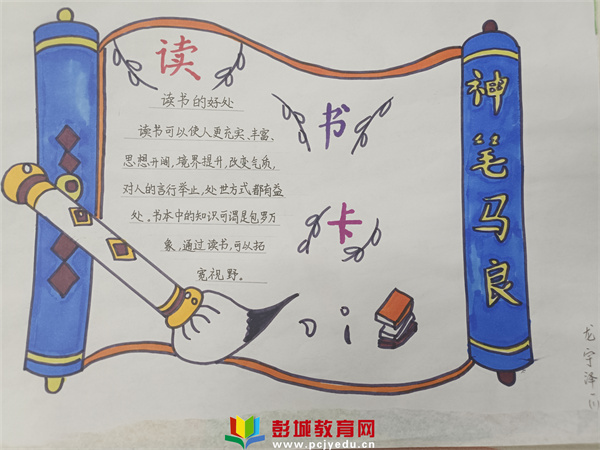 读
书
卡
读书的好处
读书可以使人更充实、丰富、
思想开阔,境界提升,改变气质,
对人的言行举止,处世方式都有益
处。书本中的知识可谓是包罗万
象,通过读书,可以拓
宽视野。
神笔马良
龙宇泽
彭城教育网
www.pcjyedu.cn